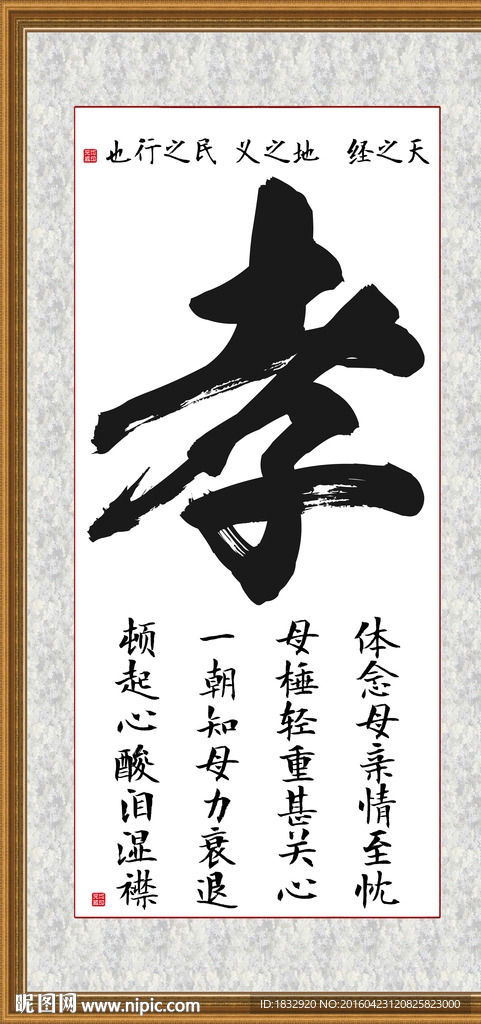 天之经 地之义 民之行也
孝
体念母亲情至忱
母棰轻重甚关心
一朝知母力衰退
顿起心酸泪湿襟
昵图网 www.nipic.com
ID:1832920 NO:20160423120825823000